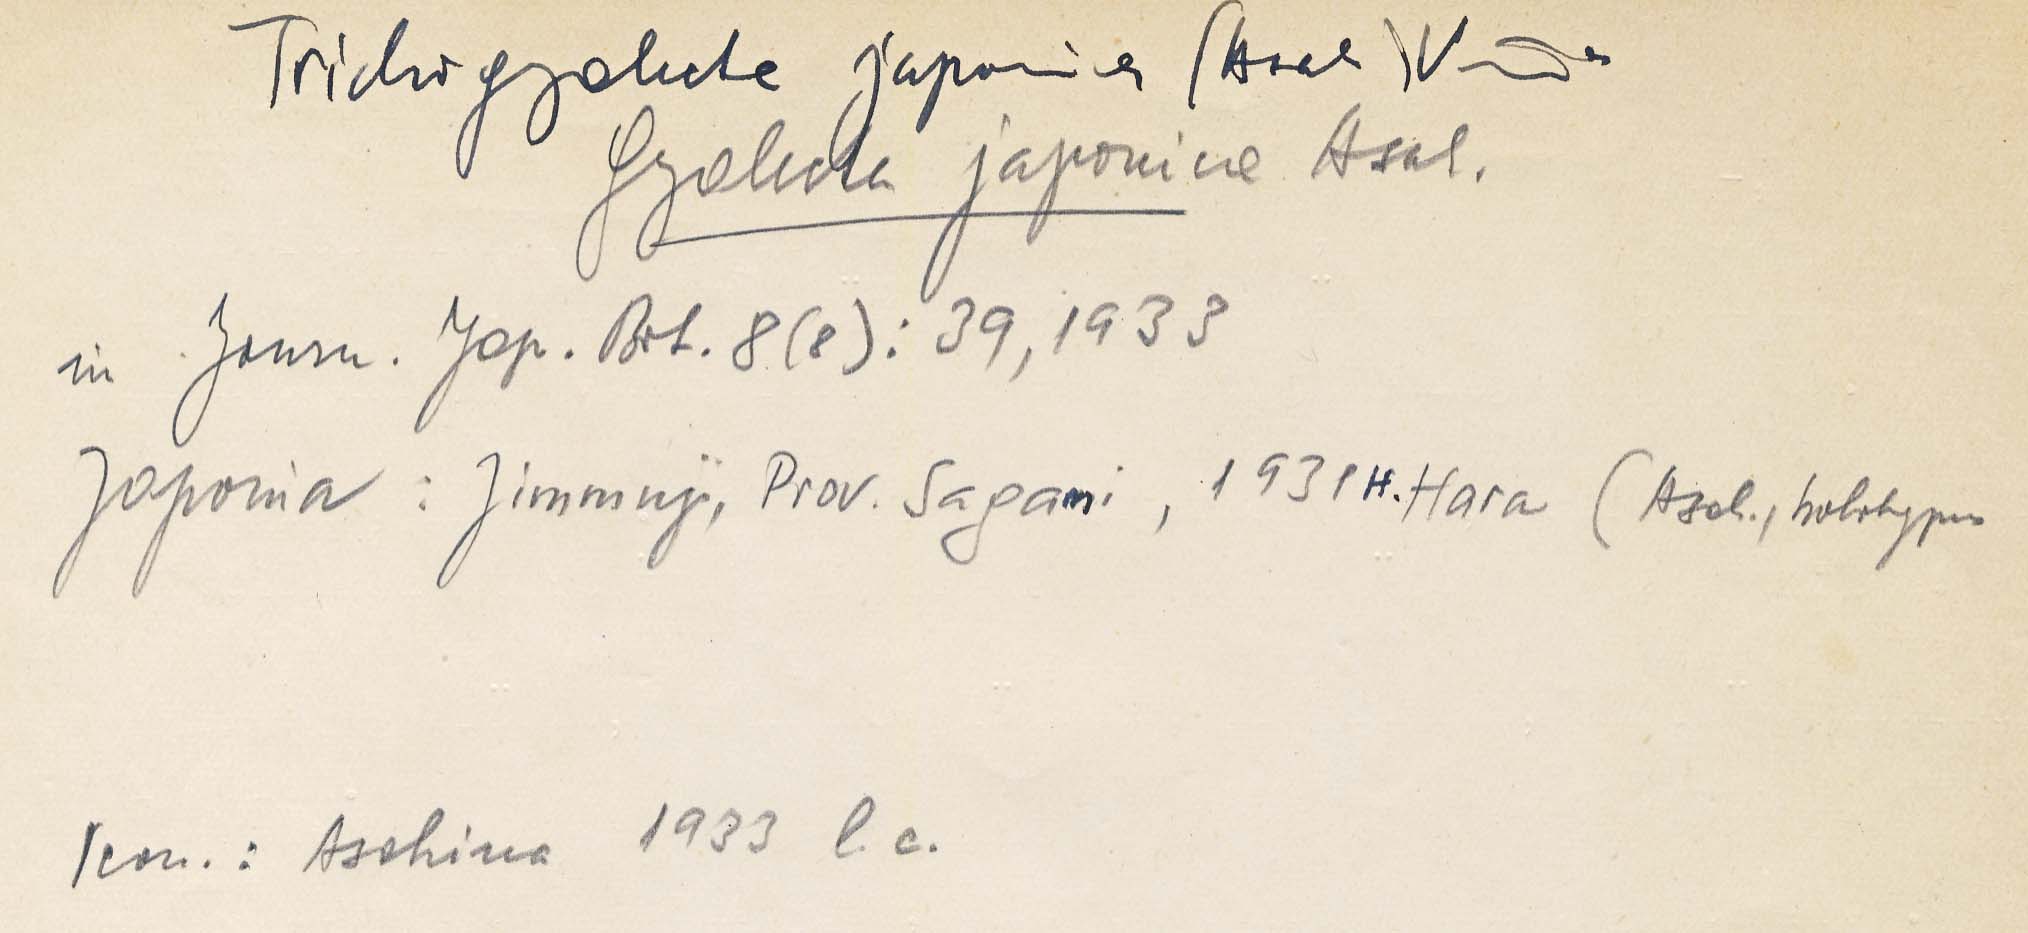 Trichogyalecta japonica (Asah.)
Gyalecta japonica Asah.
in Journ. Jap. Bot. 8(8): 39, 1933
Japonia : Jimmuji, Prov. Sagami, 1931 H. Hara (Asah., holotypus
Icon.: Asahina 1933 l. c.